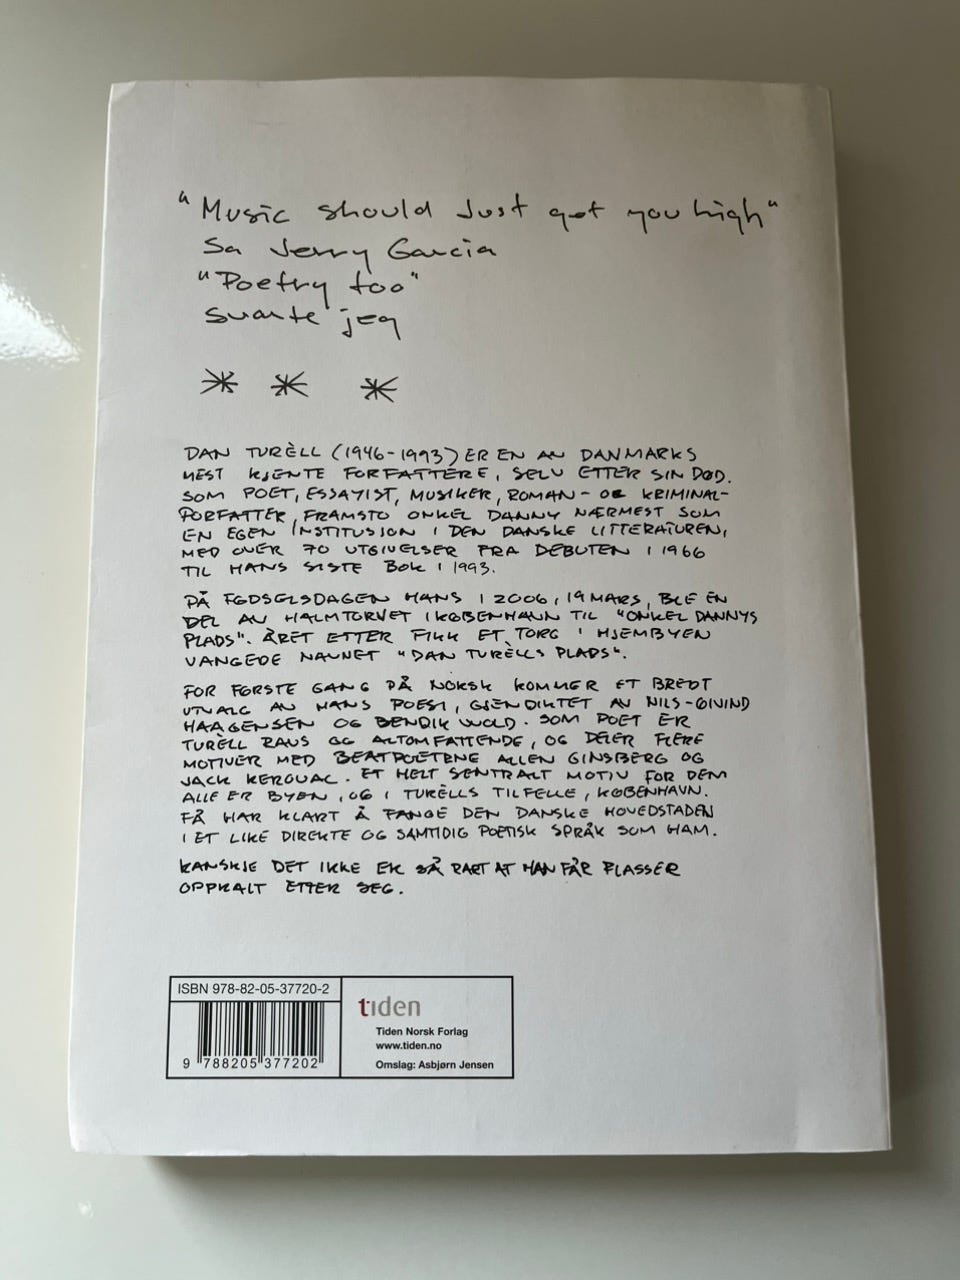 "Music should just get you high"
Sa Jerry Garcia
"Poetry too"
svarte jeg
* * *
DAN TURÈLL (1946-1993) ER EN AV DANMARKS
MEST KJENTE FORFATTERE, SELV ETTER SIN DØD.
SOM POET, ESSAYIST, MUSIKER, ROMAN- OG KRIMINAL-
FORFATTER, FRAMSTO ONKEL DANNY NÆRMEST SOM
EN EGEN INSTITUSJON I DEN DANSKE LITTERATUREN,
MED OVER 70 UTGIVELSER FRA DEBUTEN I 1966
TIL HANS SISTE BOK I 1993.
PÅ FØDSELSDAGEN HANS I 2006, 19 MARS, BLE EN
DEL AV HALMTORVET I KØBENHAVN TIL "ONKEL DANNYS
PLADS". ÅRET ETTER FIKK ET TORG I HJEMBYEN
VANGEDE NAVNET "DAN TURÈLLS PLADS".
FOR FØRSTE GANG PÅ NORSK KOMMER ET BREDT
UTVALG AV HANS POESI, GJENDIKTET AV NILS-ØIVIND
HAAGENSEN OG BENDIK WOLD. SOM POET ER
TURÈLL RAUS OG ALTOMFATTENDE, OG DELER FLERE
MOTIVER MED BEATPOETENE ALLEN GINSBERG OG
JACK KEROUAC. ET HELT SENTRALT MOTIV FOR DEM
ALLE ER BYEN, OG I TURÈLLS TILFELLE, KØBENHAVN.
FÅ HAR KLART Å FANGE DEN DANSKE HOVEDSTADEN
I ET LIKE DIREKTE OG SAMTIDIG POETISK SPRÅK SOM HAM.
KANSKJE DET IKKE ER SÅ RART AT HAN FÅR PLASSER
OPPKALT ETTER SEG.
ISBN 978-82-05-37720-2
9 788205 377202
tiden
Tiden Norsk Forlag
www.tiden.no
Omslag: Asbjørn Jensen